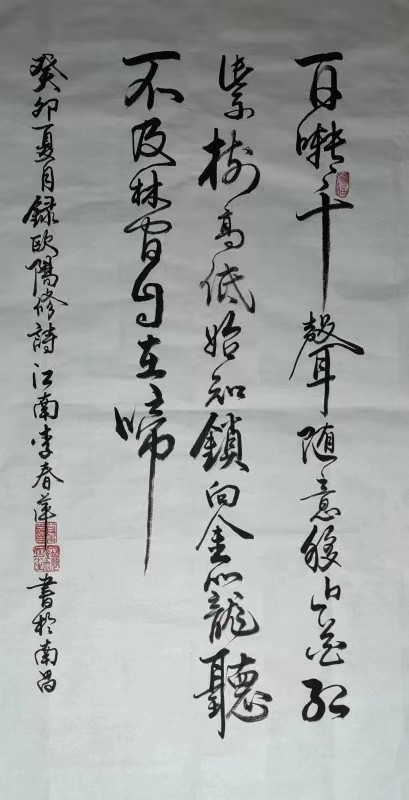 百囀千聲随意移山花紅
紫樹高低始知鎖向金籠聽
不及林間自在啼
癸卯夏月録欧陽修詩江南李春萍書於南昌